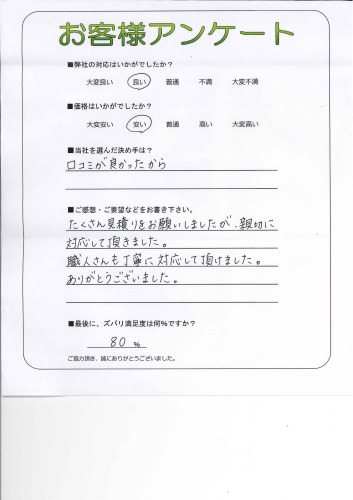 お客様アンケート
■弊社の対応はいかがでしたか？
大変良い 良い 普通 不満 大変不満
■価格はいかがでしたか？
大変安い 安い 普通 高い 大変高い
■当社を選んだ決め手は？
口コミが良かったから
■ご感想・ご要望などをお書き下さい。
たくさん見積りをお願いしましたが、親切に
対応して頂きました。
職人さんも丁寧に対応して頂けました。
ありがとうございました。
■最後に、ズバリ満足度は何%ですか？
80 %
ご協力頂き、誠にありがとうございました。